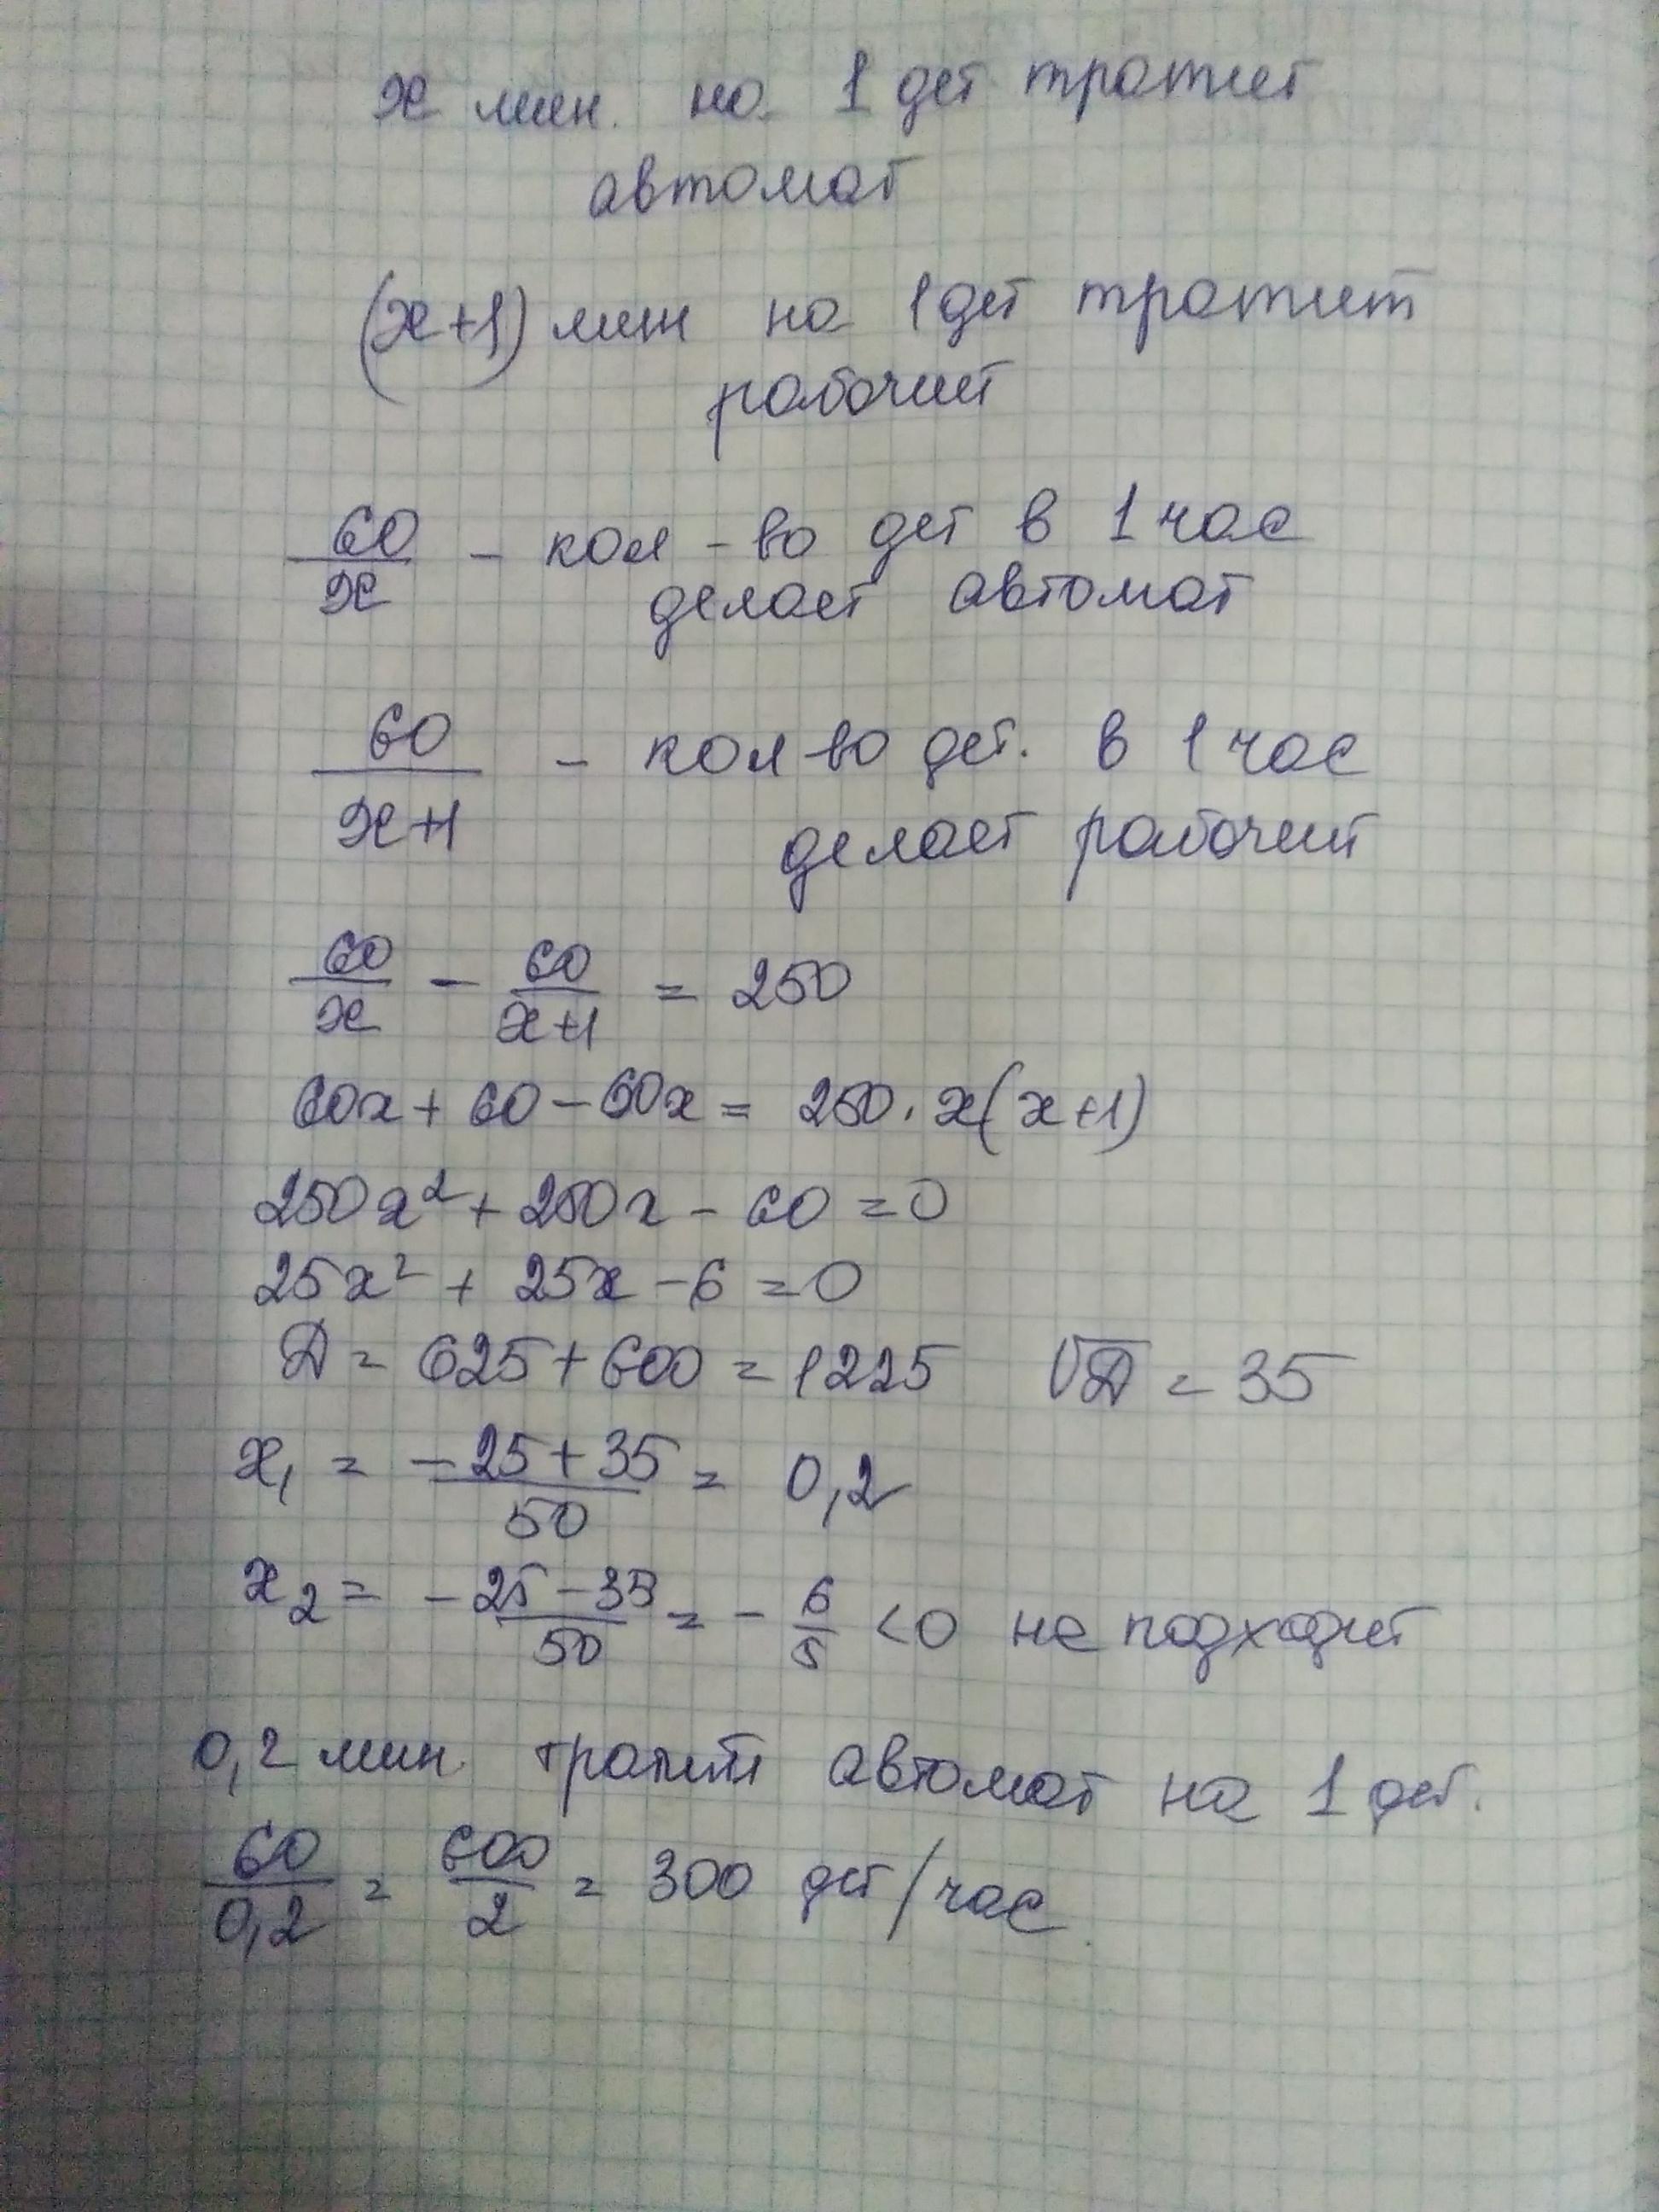 x мин. на 1 дет тратит
автомат
(x+1) мин на 1 дет тратит
рабочий
60/x - кол-во дет в 1 час
делает автомат
60/x+1 - кол-во дет. в 1 час
делает рабочий
60/x - 60/x+1 = 250
60x + 60 - 60x = 250 · x(x+1)
250x² + 250x - 60 = 0
25x² + 25x - 6 = 0
D = 625 + 600 = 1225 √D = 35
x₁ = -25 + 35/50 = 0,2
x₂ = -25 - 35/50 = - 6/5 < 0 не подходит
0,2 мин. тратит автомат на 1 дет.
60/0,2 = 600/2 = 300 дет/час.